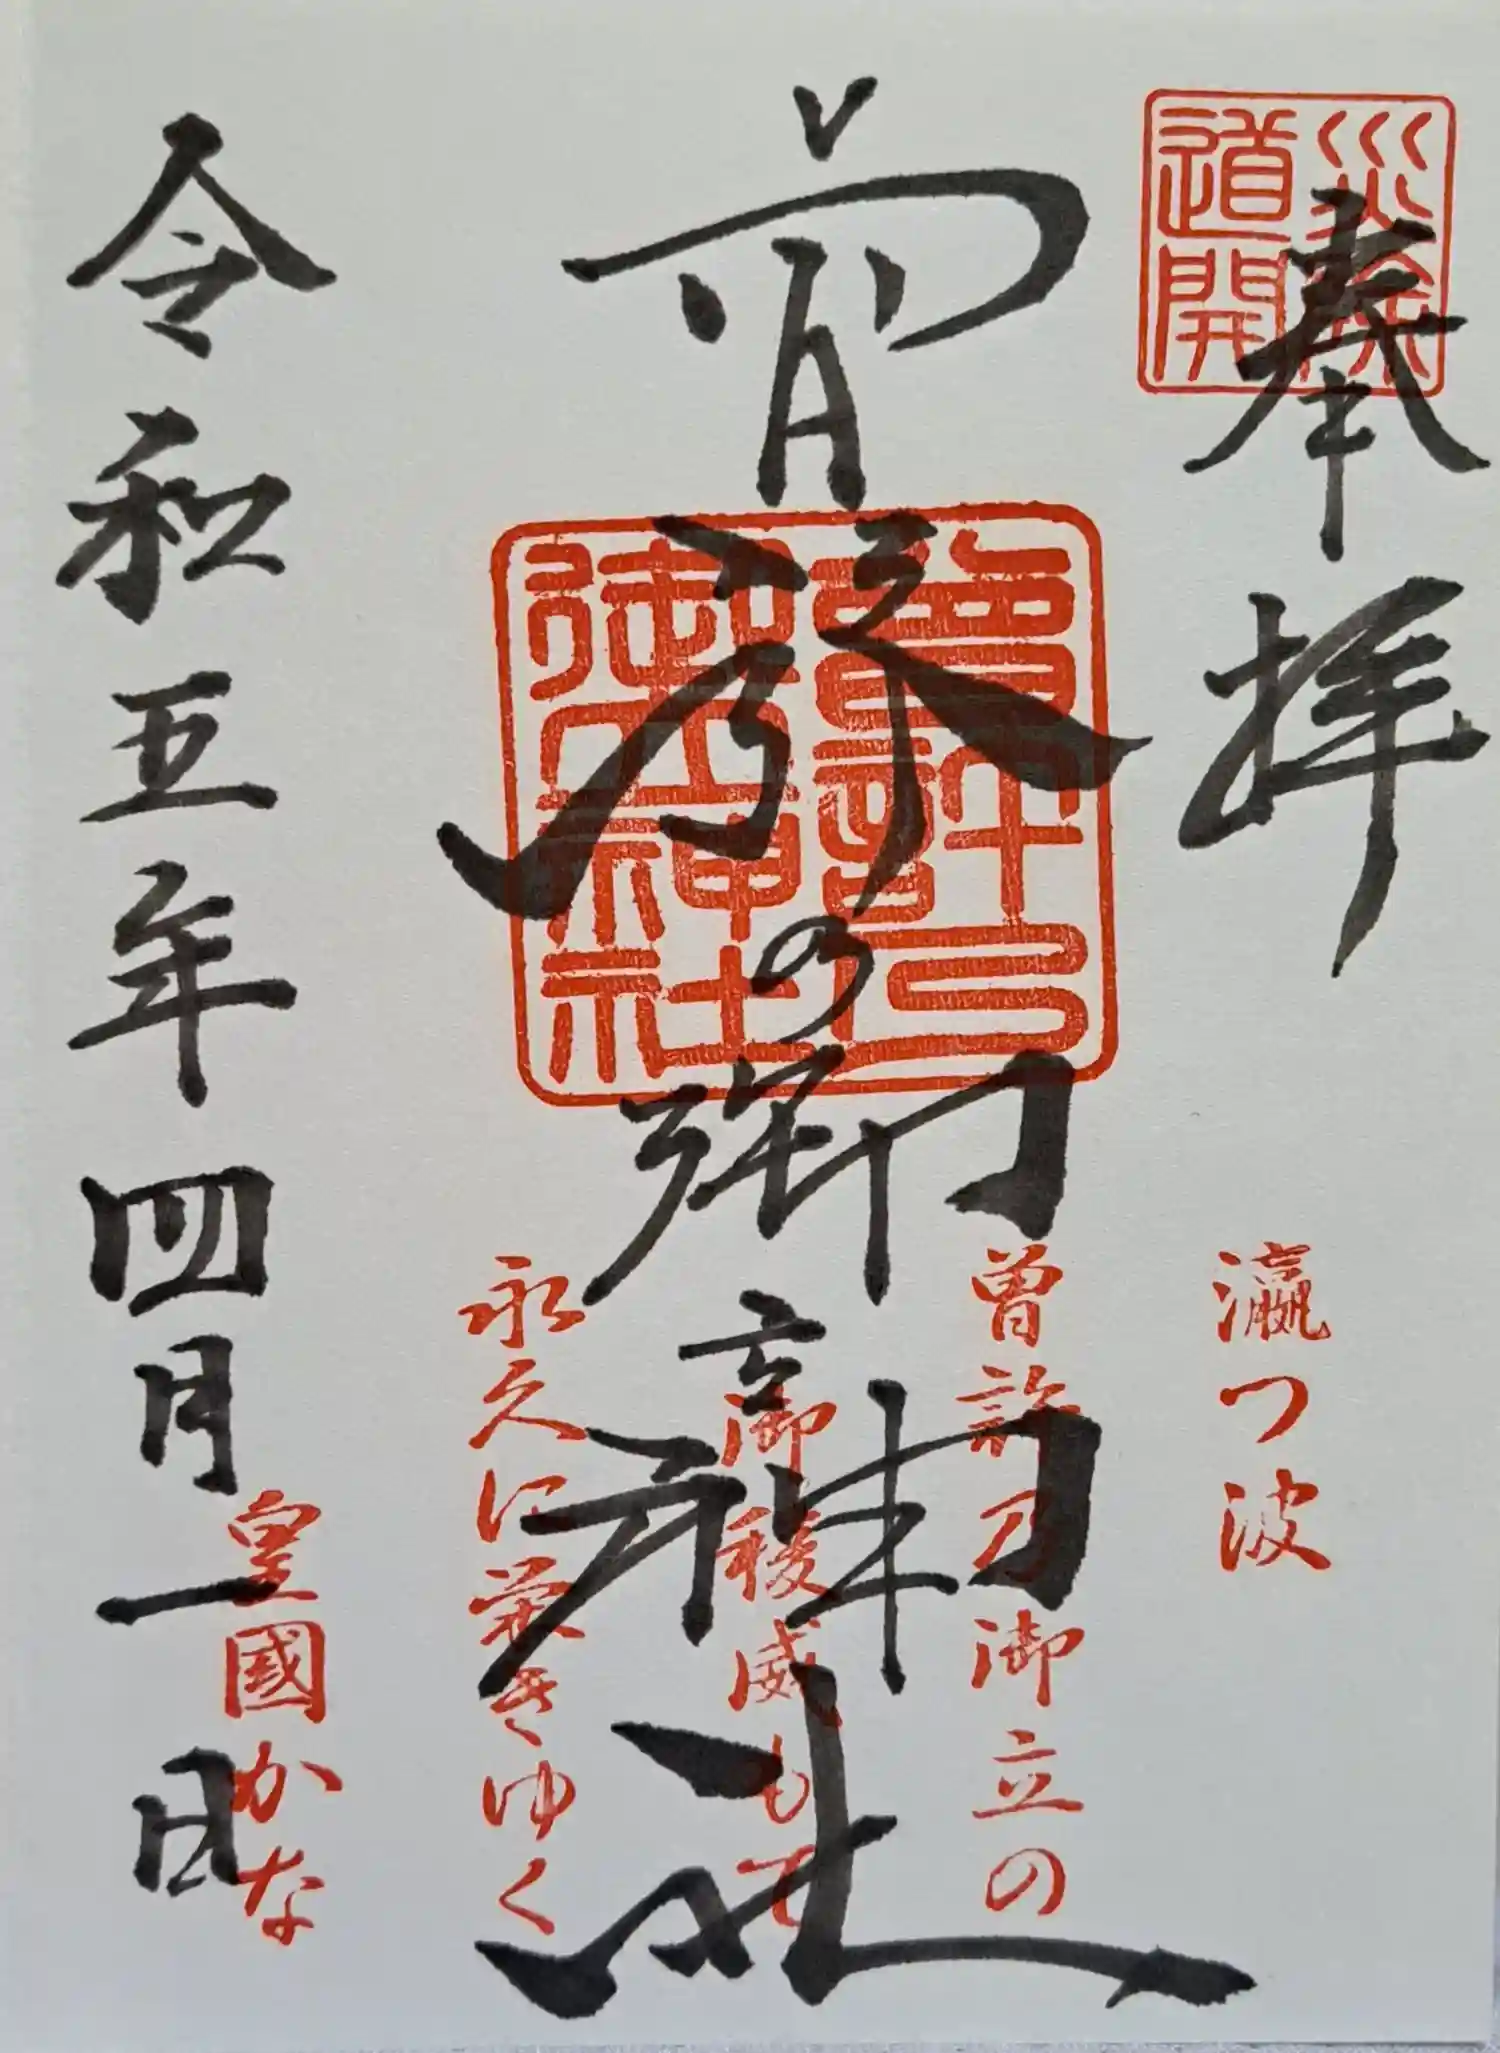 災除
道開
奉拝
曽許乃御立神社
曾許乃
御立神社
令和五年四月一日
瀛つ波
曽許乃御立の
御稜威もて
永久に栄えゆく
皇國かな